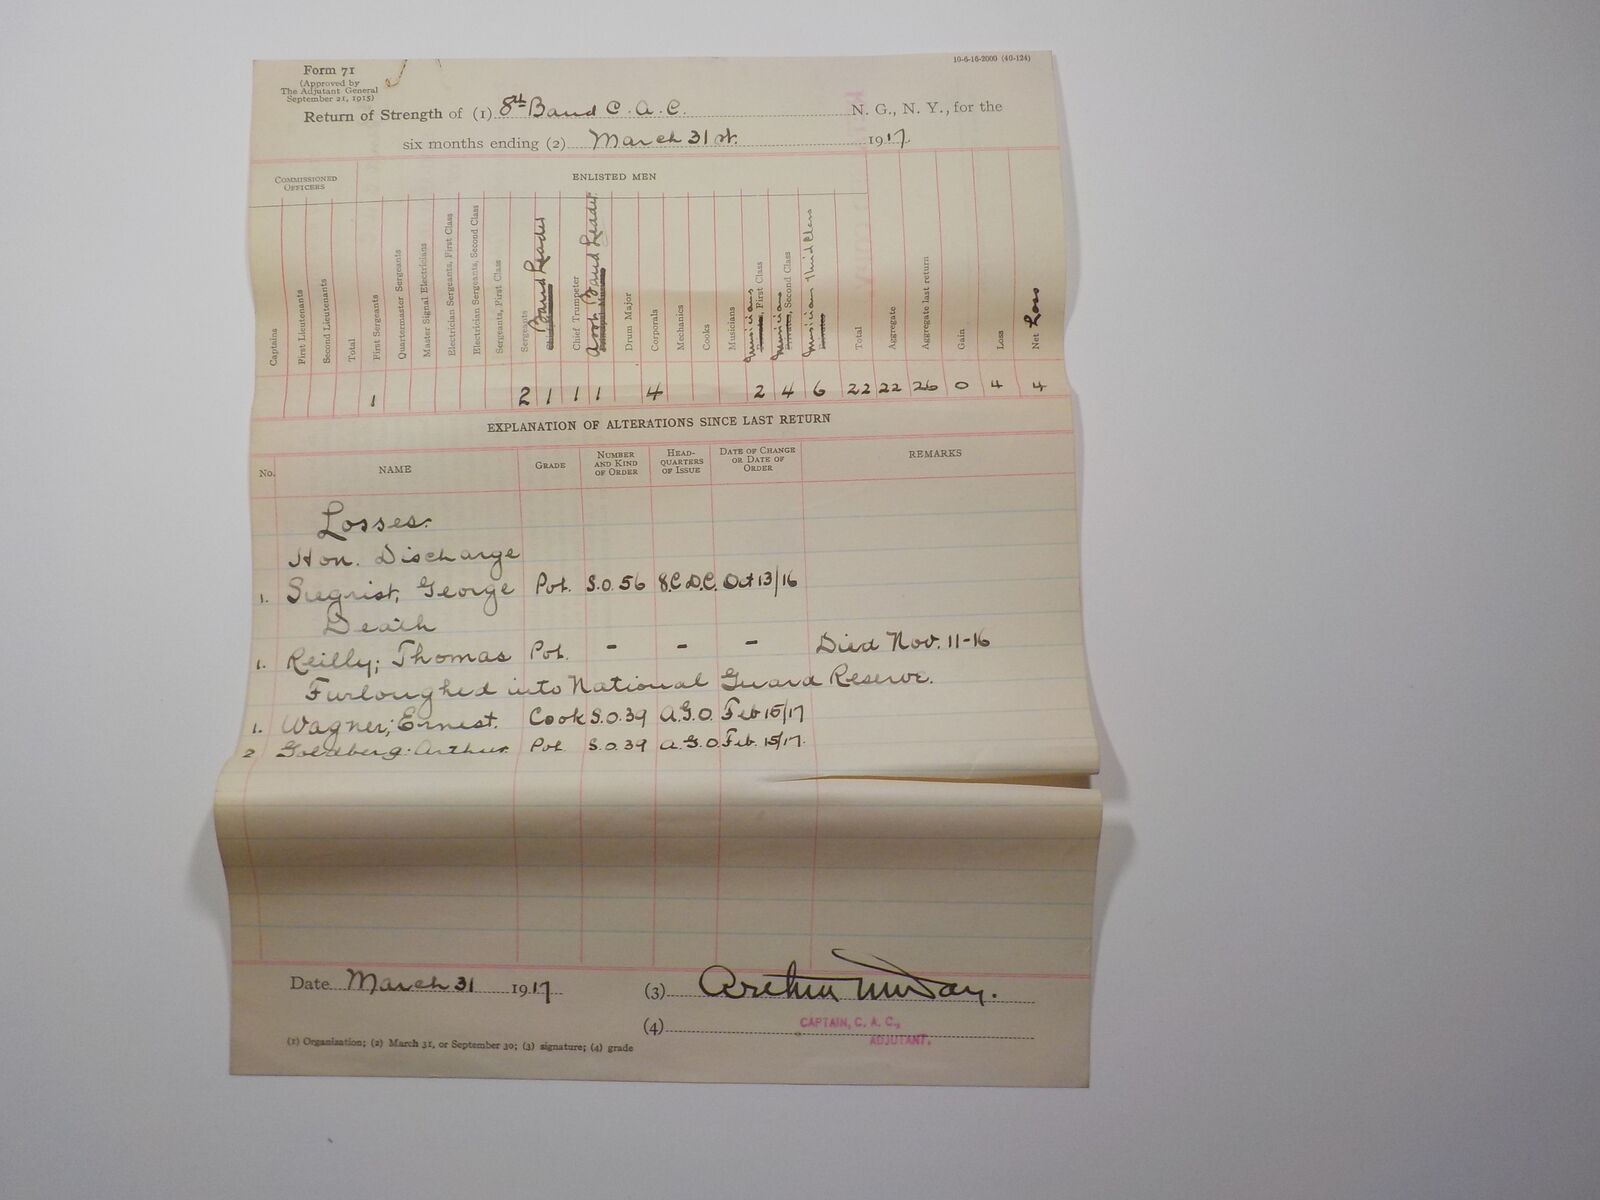 10-6-16-2000 (40-124)
Form 71
(Approved by
The Adjutant General
September 21, 1915)
Return of Strength of (1) 8th Band C. A. C. N. G., N. Y., for the
six months ending (2) March 31st. 1917.
COMMISSIONED OFFICERS
ENLISTED MEN
Captains
First Lieutenants
Second Lieutenants
Total
First Sergeants
Quartermaster Sergeants
Master Signal Electricians
Electrician Sergeants, First Class
Electrician Sergeants, Second Class
Sergeants, First Class
Sergeants
Band Leader
Chief Trumpeter
Asst Band Leader
Drum Major
Corporals
Mechanics
Cooks
Musicians
Musicians, First Class
Musicians, Second Class
Musicians Third Class
Total
Aggregate
Aggregate last return
Gain
Loss
Net Loss
1 2 1 1 1 4 2 4 6 22 22 26 0 4 4
EXPLANATION OF ALTERATIONS SINCE LAST RETURN
No. NAME GRADE NUMBER AND KIND OF ORDER HEAD-QUARTERS OF ISSUE DATE OF CHANGE OR DATE OF ORDER REMARKS
Losses.
Hon. Discharge
1. Siegrist, George Pvt. S.O. 56 8.C.D.C. Oct 13/16
Death
1. Reilly; Thomas Pvt. - - - Died Nov. 11-16
Furloughed into National Guard Reserve.
1. Wagner; Ernest. Cook S.O. 39 A.G.O. Feb 15/17
2 Goldberg. Arthur. Pvt. S.O. 39 A.G.O. Feb. 15/17.
Date March 31 1917 (3) Arthur Murray.
(4) CAPTAIN, C. A. C.,
ADJUTANT.
(1) Organization; (2) March 31, or September 30; (3) signature; (4) grade